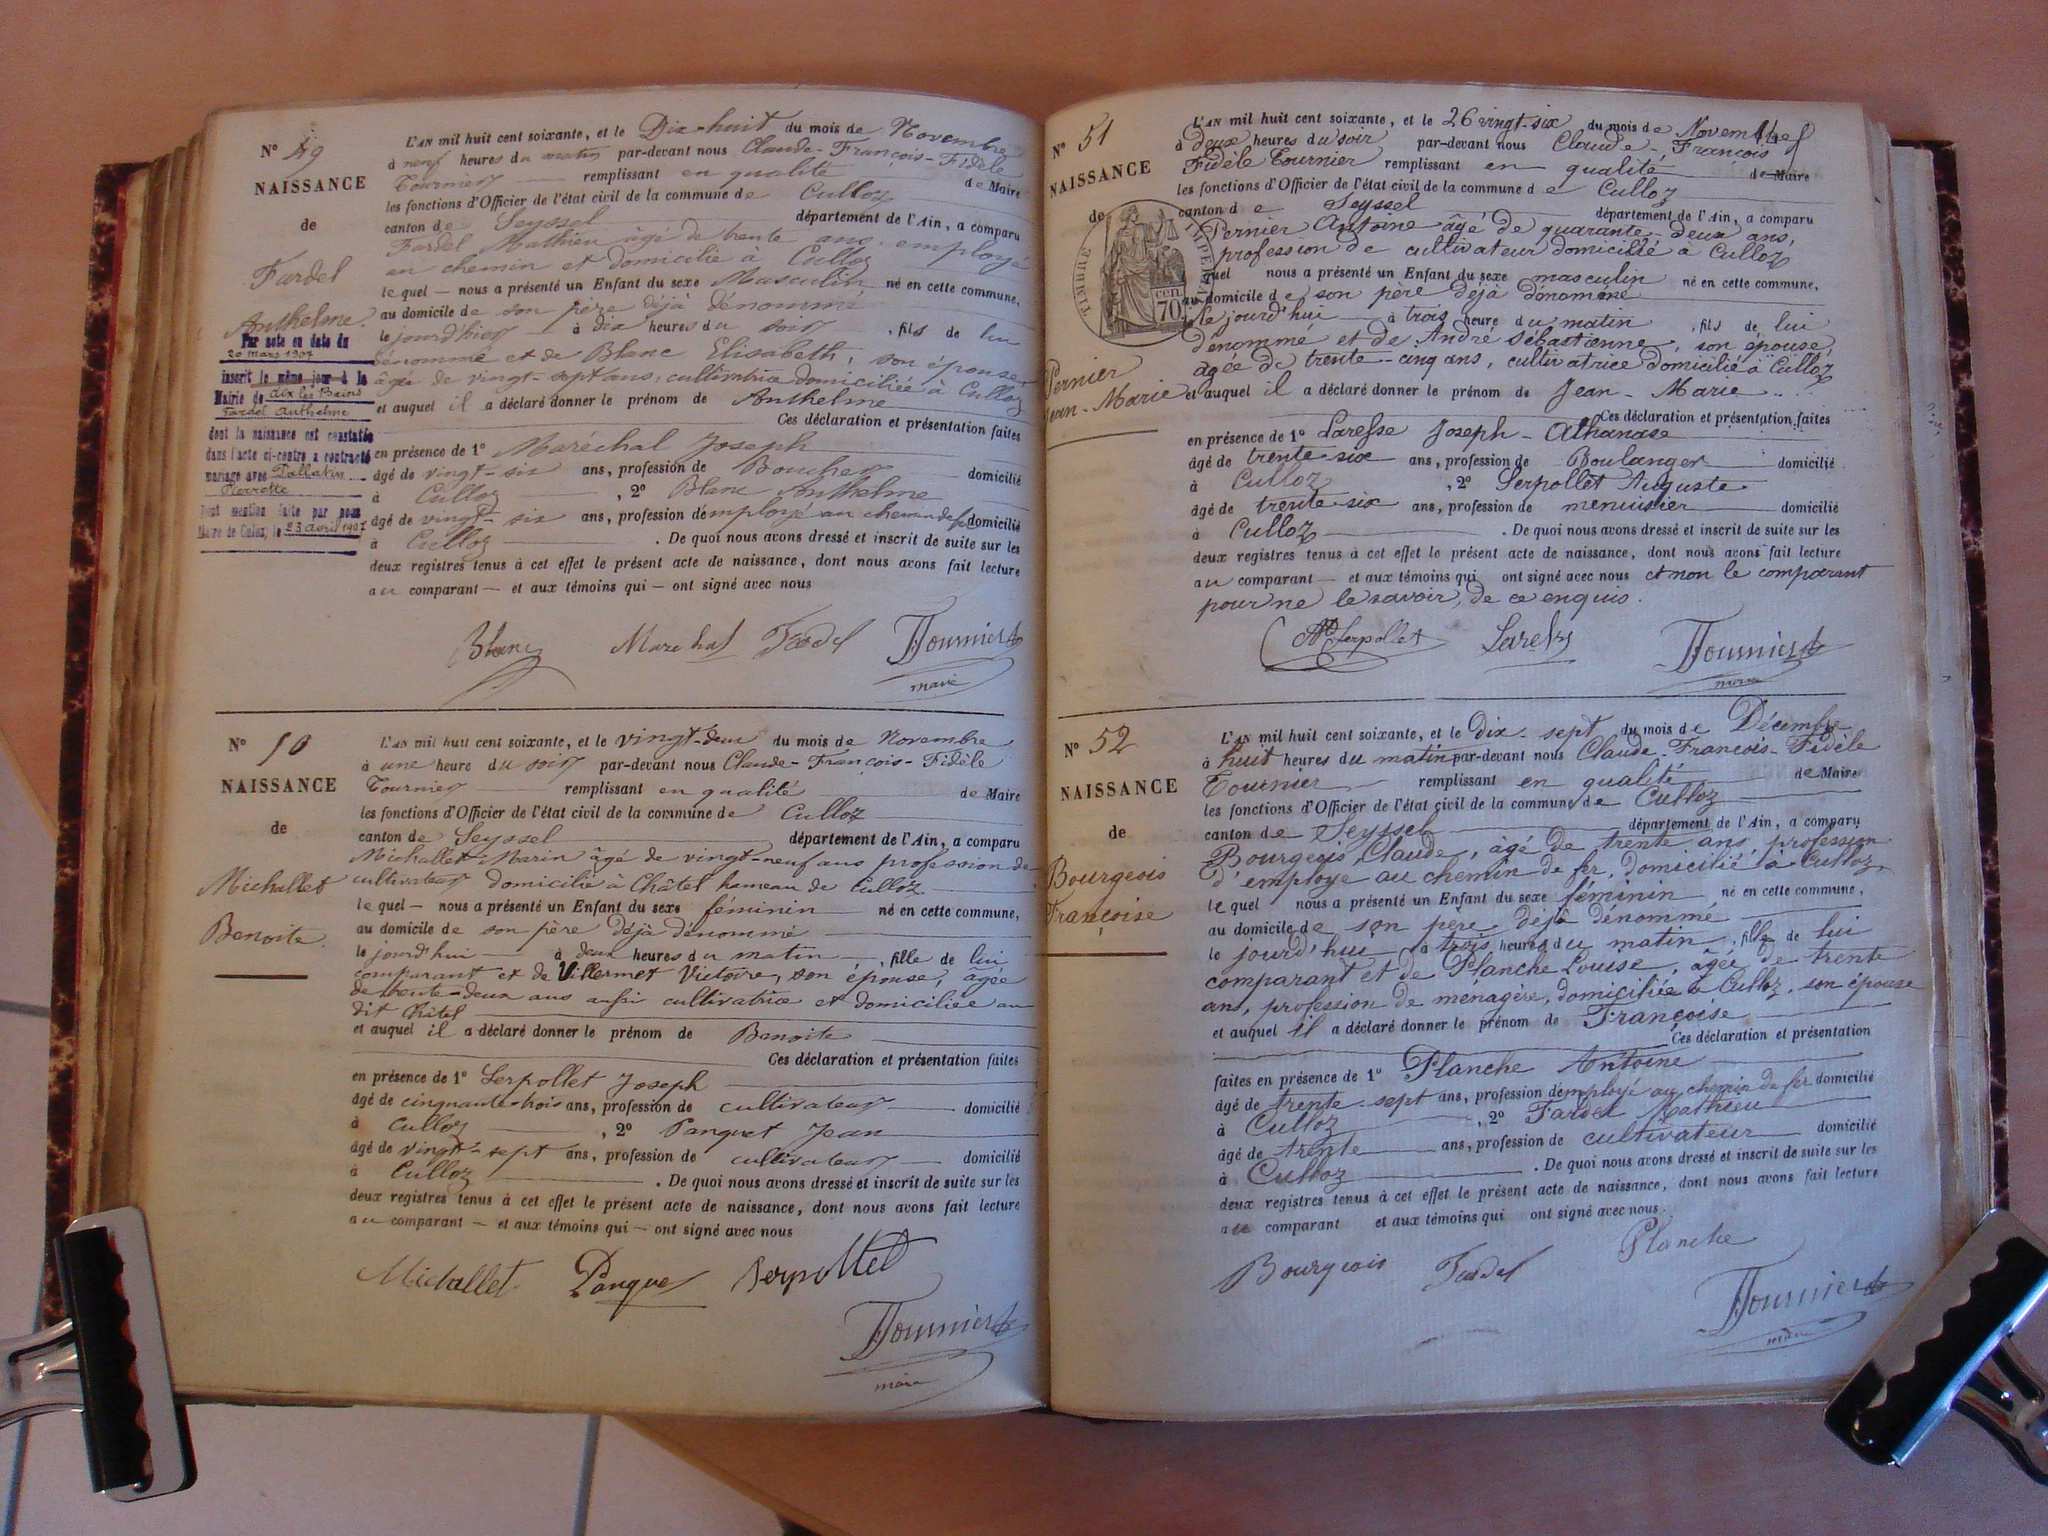 N° 49
NAISSANCE
de
Fardel
Anthelme.
Par acte en date du
20 mars 1907
inscrit le même jour à la
Mairie de Aix les Bains
Fardel Anthelme
dont la naissance est constatée
dans l'acte ci-contre a contracté
mariage avec Dallatin
Pierrette
Dont mention faite par nous
Maire de Culoz, le 23 avril 1907
L'AN mil huit cent soixante, et le Dix-huit du mois de Novembre
à neuf heures du matin par-devant nous Claude-François-Fidèle
Tournier remplissant en qualité de Maire
les fonctions d'Officier de l'état civil de la commune de Culloz
canton de Seyssel département de l'Ain, a comparu
Fardel Mathieu âgé de trente ans employé
au chemin et domicilié à Culloz
lequel — nous a présenté un Enfant du sexe Masculin né en cette commune,
au domicile de son père déjà dénommé
le jourd'hier à dix heures du soir, fils de lui
dénommé et de Blanc Elisabeth, son épouse
âgée de vingt-sept ans, cultivatrice domiciliée à Culloz
et auquel il a déclaré donner le prénom de Anthelme
Ces déclaration et présentation faites
en présence de 1° Maréchal Joseph
âgé de vingt-six ans, profession de Boucher domicilié
à Culloz, 2° Blanc Anthelme
âgé de vingt-six ans, profession d'employé au chemin de f. domicilié
à Culloz. De quoi nous avons dressé et inscrit de suite sur les
deux registres tenus à cet effet le présent acte de naissance, dont nous avons fait lecture
au comparant — et aux témoins qui — ont signé avec nous
Blanc Marechal Fardel Tournier
maire
N° 50
NAISSANCE
de
Michallet
Benoite.
L'AN mil huit cent soixante, et le vingt-deux du mois de Novembre
à une heure du soir par-devant nous Claude-François-Fidèle
Tournier remplissant en qualité de Maire
les fonctions d'Officier de l'état civil de la commune de Culloz
canton de Seyssel département de l'Ain, a comparu
Michallet Marin âgé de vingt-neuf ans profession de
cultivateur domicilié à Châtel hameau de Culloz.
lequel — nous a présenté un Enfant du sexe féminin né en cette commune,
au domicile de son père déjà dénommé
le jourd'hui à deux heures du matin, fille de lui
comparant et de Villermet Victoire, son épouse, âgée
de trente-deux ans aussi cultivatrice et domiciliée au
dit Châtel
et auquel il a déclaré donner le prénom de Benoite
Ces déclaration et présentation faites
en présence de 1° Serpollet Joseph
âgé de cinquante-trois ans, profession de cultivateur domicilié
à Culloz, 2° Panquet Jean
âgé de vingt-sept ans, profession de cultivateur domicilié
à Culloz. De quoi nous avons dressé et inscrit de suite sur les
deux registres tenus à cet effet le présent acte de naissance, dont nous avons fait lecture
au comparant — et aux témoins qui — ont signé avec nous
Michallet Panquet Serpollet
Tournier
maire
N° 51
NAISSANCE
de
TIMBRE IMPERIAL
70 cen.
Pernier
Jean-Marie
L'AN mil huit cent soixante, et le 26 vingt-six du mois de Novembre
à deux heures du soir par-devant nous Claude-François
Fidèle Tournier remplissant en qualité de Maire
les fonctions d'Officier de l'état civil de la commune de Culloz
canton de Seyssel département de l'Ain, a comparu
Pernier Antoine âgé de quarante-deux ans,
profession de cultivateur domicilié à Culloz
lequel nous a présenté un Enfant du sexe masculin né en cette commune,
au domicile de son père déjà dénommé
le jourd'hui à trois heure du matin, fils de lui
dénommé et de André Sébastienne, son épouse,
agée de trente-cinq ans, cultivatrice domicilié à Culloz
et auquel il a déclaré donner le prénom de Jean-Marie
Ces déclaration et présentation faites
en présence de 1° Laresse Joseph-Athanase
âgé de trente six ans, profession de Boulanger domicilié
à Culloz, 2° Serpollet Auguste
âgé de trente six ans, profession de menuisier domicilié
à Culloz. De quoi nous avons dressé et inscrit de suite sur les
deux registres tenus à cet effet le présent acte de naissance, dont nous avons fait lecture
au comparant — et aux témoins qui ont signé avec nous et non le comparant
pour ne le savoir, de ce enquis.
Serpollet Tournier
maire
N° 52
NAISSANCE
de
Bourgeois
Françoise
L'AN mil huit cent soixante, et le Dix-sept du mois de Décembre
à huit heures du matin par-devant nous Claude-François-Fidèle
Tournier remplissant en qualité de Maire
les fonctions d'Officier de l'état civil de la commune de Culloz
canton de Seyssel département de l'Ain, a comparu
Bourgeois Claude, âgé de trente ans, profession
d'employe au chemin de fer, domicilié à Culloz,
lequel nous a présenté un Enfant du sexe féminin né en cette commune,
au domicile de son père déjà dénommé
le jourd'hui à trois heures du matin, fille de lui
comparant et de Planche Louise, âgée de trente
ans, profession de ménagère, domiciliée à Culloz, son épouse
et auquel il a déclaré donner le prénom de Françoise
Ces déclaration et présentation
faites en présence de 1° Planche Antoine
âgé de trente-sept ans, profession d'employé au chemin de fer domicilié
à Culloz, 2° Fardel Mathieu
âgé de trente ans, profession de cultivateur domicilié
à Culloz. De quoi nous avons dressé et inscrit de suite sur les
deux registres tenus à cet effet le présent acte de naissance, dont nous avons fait lecture
au comparant et aux témoins qui ont signé avec nous.
Bourgeois Fardel Planche
Tournier
maire